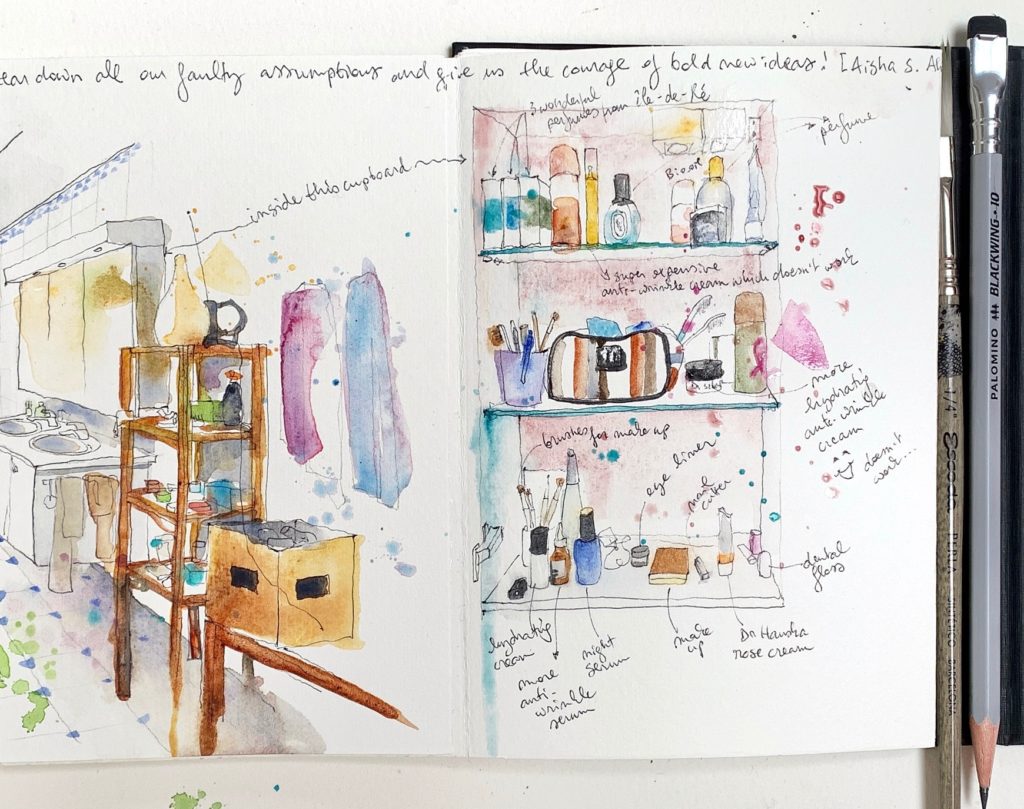 down all our faulty assumptions and give us the courage of bold new ideas! [Aisha S. A
3 wonderful
perfumes from île-de-Ré
perfume
inside this cupboard
Biooil
super expensive
anti-wrinkle cream which doesn't work
more
hydrating
anti-wrinkle
cream
doesn't
work...
brushes for make up
eye liner
nail
cutter
dental
floss
hydrating
cream
more
anti-
wrinkle
serum
night
serum
make
up
Dr. Hauska
rose cream
PALOMINO BLACKWING·10
1/4" Escoda PERLA
BARCELONA